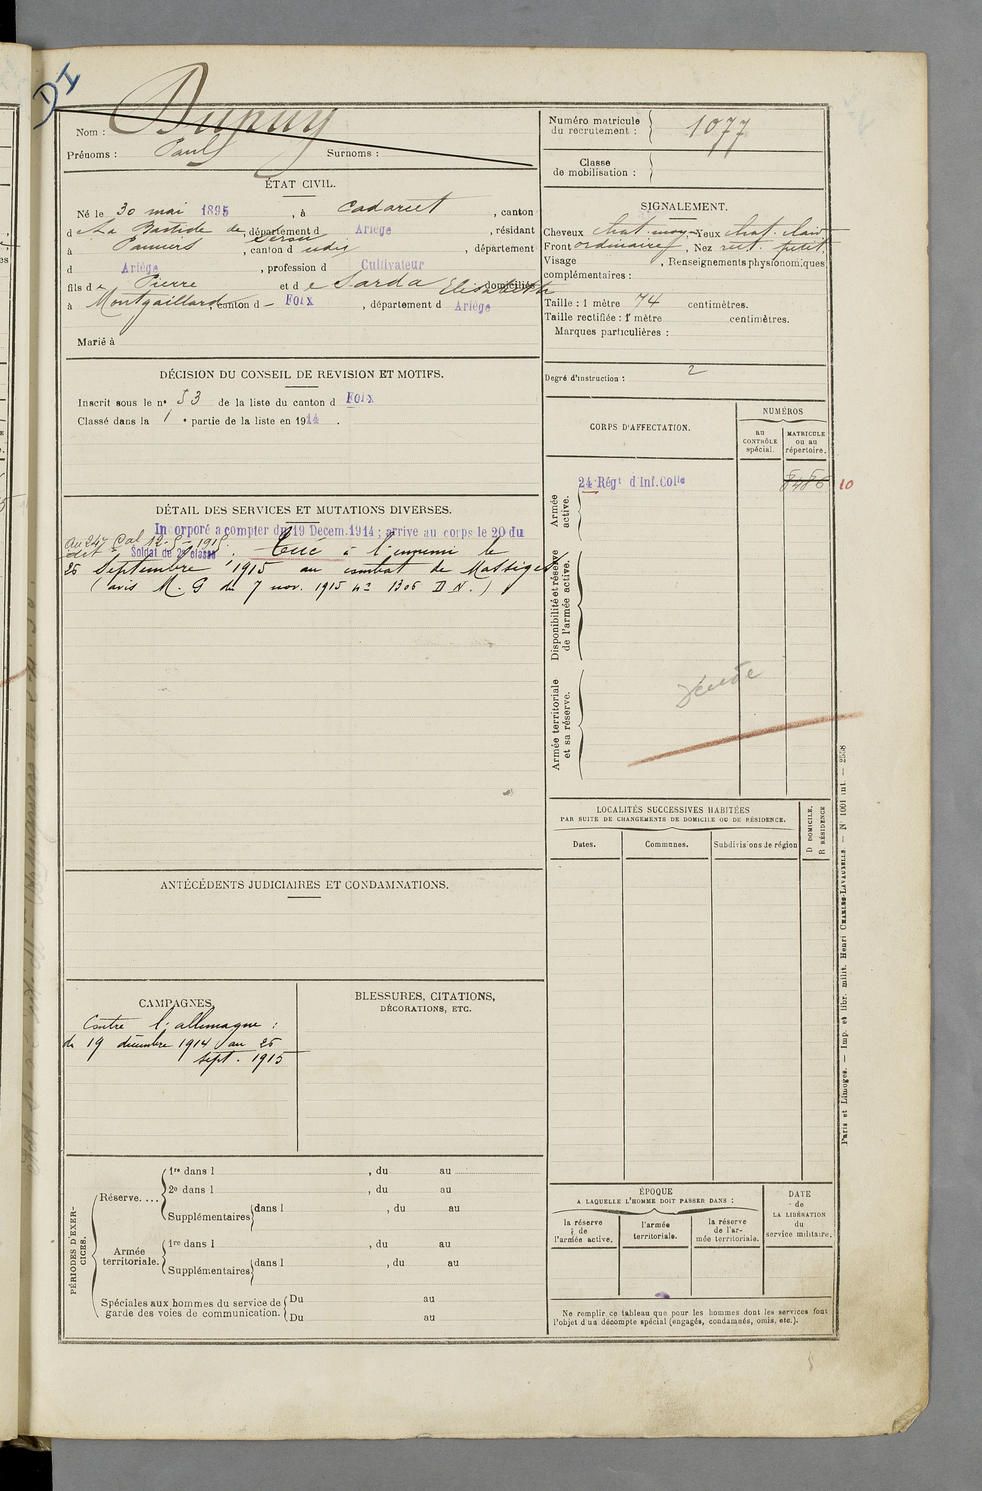 DI
Nom : Dupuy
Prénoms : Paul Surnoms :
ÉTAT CIVIL.
Né le 30 mai 1895, à Cadarcet, canton
d e La Bastide de Sérou, département d Ariège, résidant
à Pamiers, canton d udis, département
d Ariège, profession d Cultivateur
fils d e Pierre et d e Sarda Elisabeth domiciliés
à Montgaillard, canton d - Foix, département d Ariège
Marié à
DÉCISION DU CONSEIL DE REVISION ET MOTIFS.
Inscrit sous le n° 53 de la liste du canton d Foix
Classé dans la 1 e partie de la liste en 1914.
DÉTAIL DES SERVICES ET MUTATIONS DIVERSES.
Incorporé a compter du 19 Décem. 1914 ; arrive au corps le 20 du
dit Soldat de 2e classe. Au 24e Cal 12-5-1915. Tué à l'ennemi le
25 Septembre 1915 au combat de Massiges
(avis M. G du 7 nov. 1915 n° 1306 D N.)
ANTÉCÉDENTS JUDICIAIRES ET CONDAMNATIONS.
CAMPAGNES.
Contre l'allemagne :
du 19 décembre 1914 au 25
sept. 1915
BLESSURES, CITATIONS,
DÉCORATIONS, ETC.
PÉRIODES D'EXERCICES.
Réserve....
1re dans l , du au
2e dans l , du au
Supplémentaires dans l , du au
Armée territoriale.
1re dans l , du au
Supplémentaires dans l , du au
Spéciales aux hommes du service de garde des voies de communication.
Du au
Du au
Numéro matricule
du recrutement : 1077
Classe
de mobilisation :
SIGNALEMENT.
Cheveux chat. moy., Yeux chat. clair
Front ordinaire, Nez rect. petit
Visage , Renseignements physionomiques
complémentaires :
Taille : 1 mètre 74 centimètres.
Taille rectifiée : 1 mètre centimètres.
Marques particulières :
Degré d'instruction : 2
CORPS D'AFFECTATION.
NUMÉROS
au CONTRÔLE spécial.
MATRICULE ou au répertoire.
Armée active.
24 Régt d Inf. Colle 8486 10
Disponibilité et réserve de l'armée active.
Armée territoriale et sa réserve.
LOCALITÉS SUCCESSIVES HABITÉES
PAR SUITE DE CHANGEMENTS DE DOMICILE OU DE RÉSIDENCE.
Dates.
Communes.
Subdivisions de région
D DOMICILE.
R RÉSIDENCE
ÉPOQUE
A LAQUELLE L'HOMME DOIT PASSER DANS :
la réserve de l'armée active.
l'armée territoriale.
la réserve de l'armée territoriale.
DATE de LA LIBÉRATION du service militaire.
Ne remplir ce tableau que pour les hommes dont les services font
l'objet d'un décompte spécial (engagés, condamnés, omis, etc.).
Paris et Limoges. — Imp. et libr. milit. Henri CHARLES-LAVAUZELLE. — N° 1001 int. — 2558